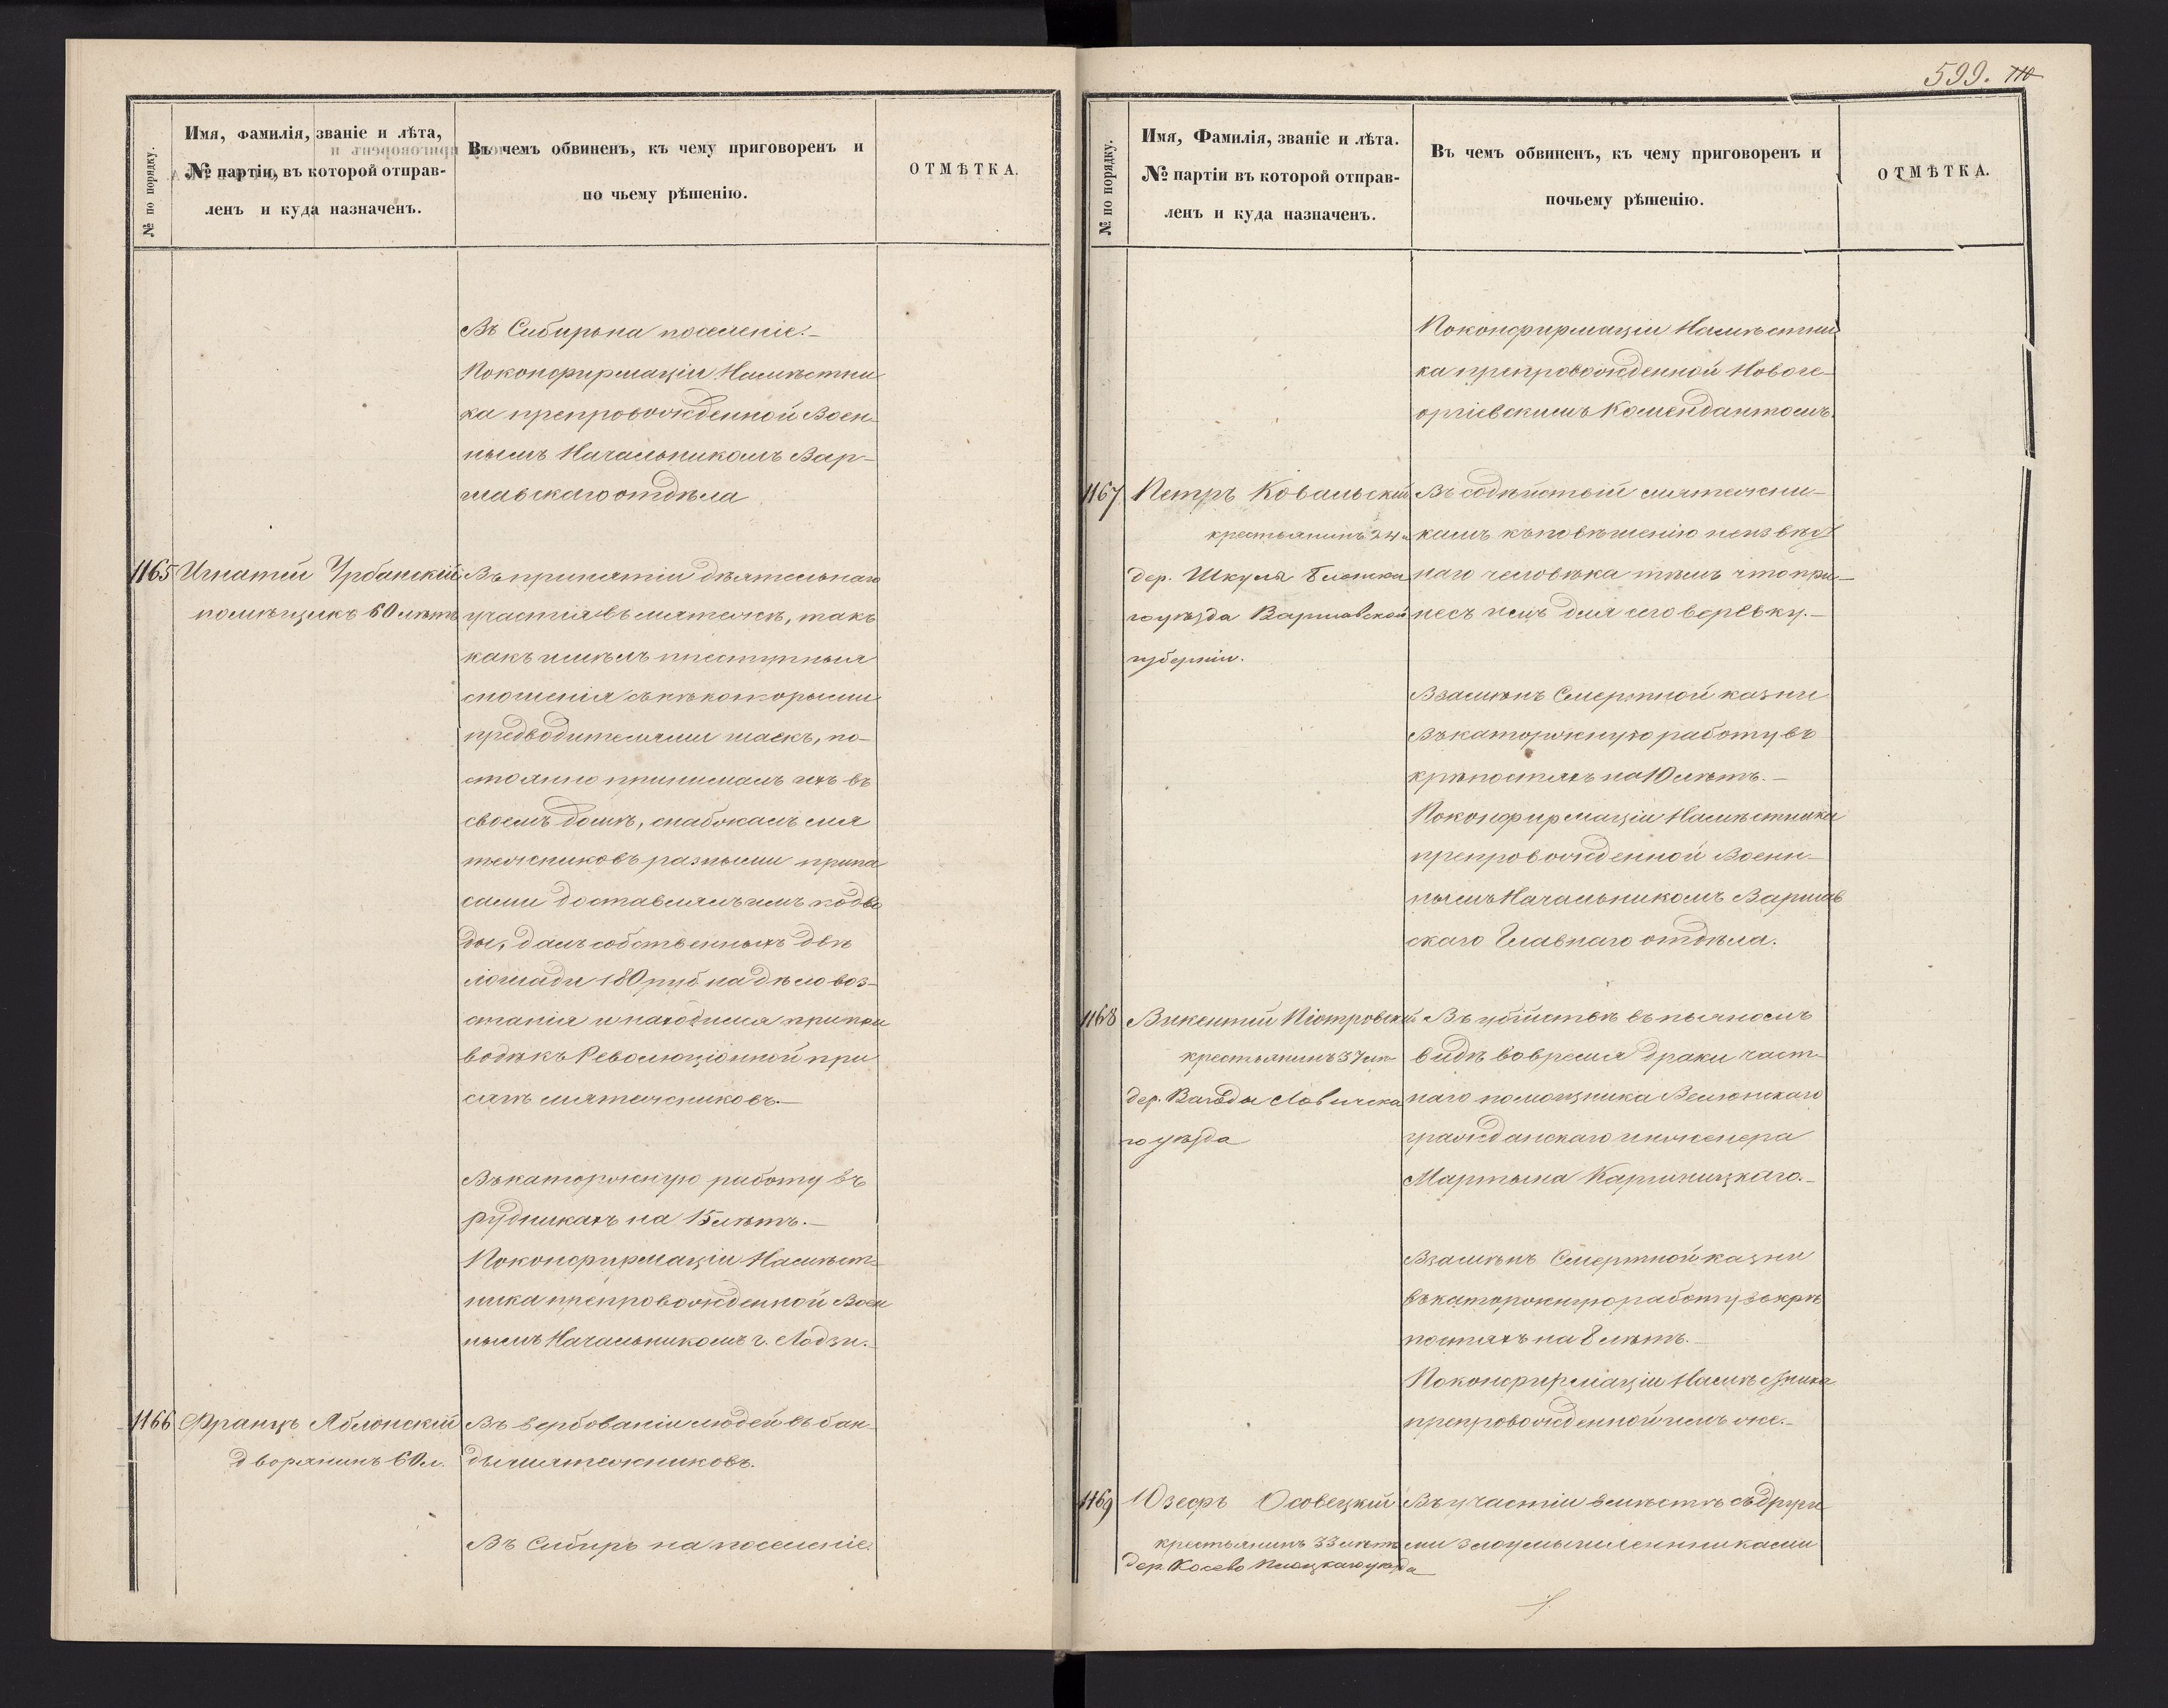 599. 110
№ по порядку.
Имя, фамилія, званіе и лѣта,
№ партіи, въ которой отправ-
ленъ и куда назначенъ.
Въ чемъ обвиненъ, къ чему приговоренъ и
по чьему рѣшенію.
ОТМѢТКА.
Въ Сибирь на поселеніе.-
По конфирмаціи Намѣстни
ка препровожденной Воен-
нымъ Начальникомъ Вар-
шавскаго отдѣла
1165 Игнатій Урбанскій
помѣщикъ 60 лѣтъ
Въ принятіи дѣятельнаго
участія въ мятежѣ, такъ
какъ имѣлъ преступныя
сношенія съ нѣкоторыми
предводителями шаекъ, по-
стоянно принималъ ихъ въ
своемъ домѣ, снабжалъ мя
тежниковъ разными припа
сами доставлялъ имъ подво
ды, далъ собственныхъ двѣ
лошади 180 руб. на дѣло воз-
станія и находился при при
водѣ къ Революціонной при
сягѣ мятежниковъ.-
Въ каторжную работу въ
рудникахъ на 15 лѣтъ.-
По конфирмаціи Намѣст-
ника препровожденной Воен
нымъ Начальникомъ г. Лодзи.-
1166 Францъ Яблонскій
дворянинъ 60 л.
Въ вербованіи людей въ бан-
ды мятежниковъ.
Въ Сибирь на поселеніе.
№ по порядку.
Имя, Фамилія, званіе и лѣта.
№ партіи въ которой отправ-
ленъ и куда назначенъ.
Въ чемъ обвиненъ, къ чему приговоренъ и
почьему рѣшенію.
ОТМѢТКА.
По конфирмаціи Намѣстни
ка препровожденной Новоге-
оргіевскимъ Комендантомъ.
1167 Петръ Ковальскій
крестьянинъ 24 л
дер. Шкуля Блонска
го уѣзда Варшавской
губерніи.
Въ содѣйствіи мятежни-
камъ къ повѣшенію неизвѣст
наго человѣка тѣмъ что при-
несъ имъ для сего веревку.-
Взамѣнъ Смертной казни
въ каторжную работу въ
крѣпостяхъ на 10 лѣтъ.-
По конфирмаціи Намѣстника
препровожденной Военн-
нымъ Начальникомъ Варшав
скаго Главнаго отдѣла.
1168 Викентій Піотровскій
крестьянинъ 37 лѣ
дер. Ловичска
го уѣзда
Въ убійствѣ въ пьяномъ
видѣ во время драки част-
наго помощника Велюнскаго
гражданскаго инженера
Мартына Карчницкаго.-
Взамѣнъ Смертной казни
въ каторжную работу въ крѣ
постяхъ на 8 лѣтъ.-
По конфирмаціи Намѣстника
препровожденной имъ же.-
1169 Юзефъ Осовецкій
крестьянинъ 33 лѣтъ
дер. Косево Плоцкаго уѣзда
Въ участіи вмѣстѣ съ други
ми злоумышленниками